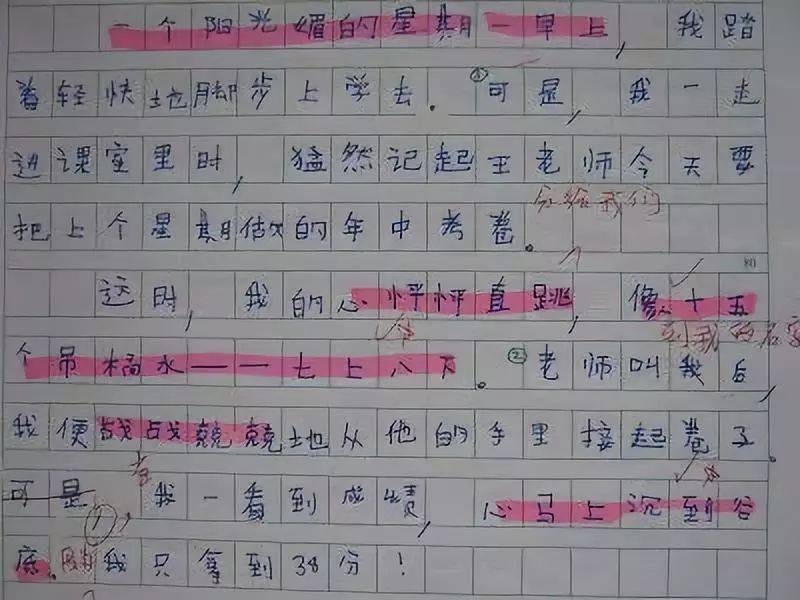 一个阳光媚的星期一早上，我踏
着轻快地脚步上学去。①可是，我一走
进课室里时，猛然记起王老师今天要
分给我们
把上个星期做的年中考卷。
80
这时，我的心怦怦直跳，像十五
到我的名字
个吊桶水——七上八下。②老师叫我后，
我便战战兢兢地从他的手里接起卷子。
可是我一看到成绩，心马上沉到谷
底。我只拿到38分！